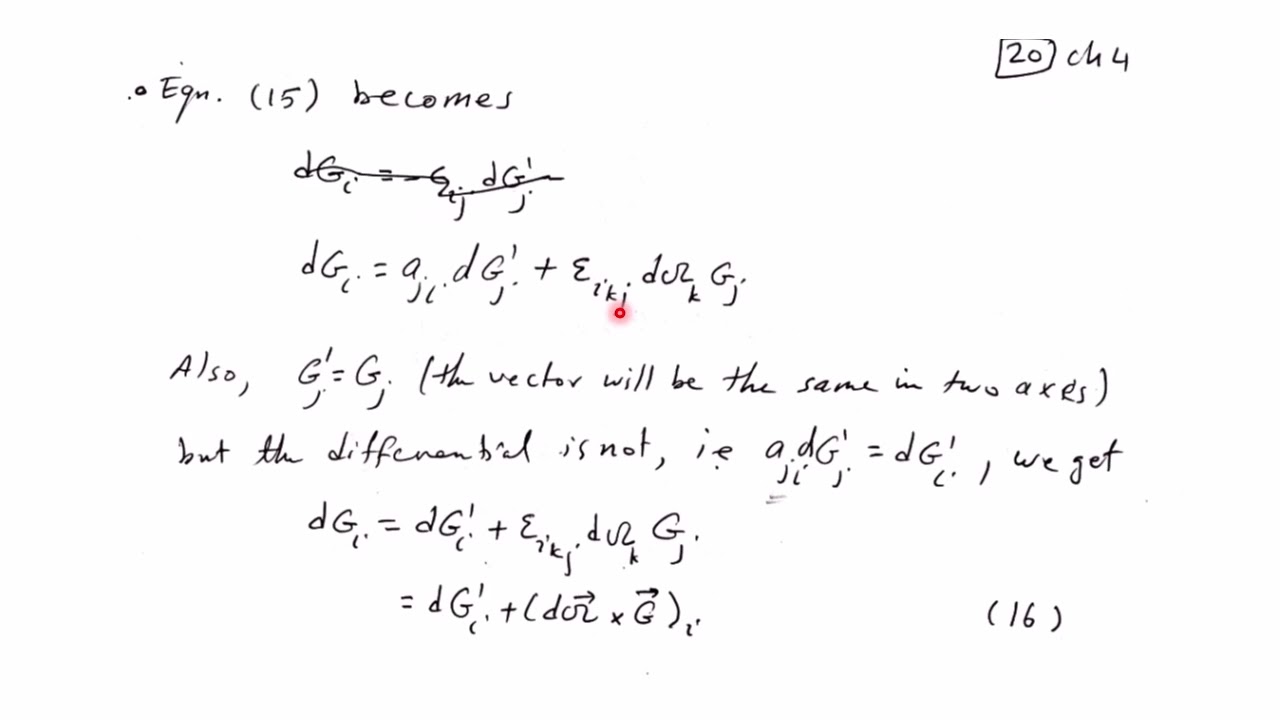 [20] ch 4
∴ Eqn. (15) becomes
dG_i = -ε_ij dG'_j
dG_i = a_ji dG'_j + ε_ikj dΩ_k G_j
Also, G'_j = G_j (the vector will be the same in two axes)
but the differential is not, i.e a_ji dG'_j = dG'_i, we get
dG_i = dG'_i + ε_ikj dΩ_k G_j
= dG'_i + (dΩ⃗ × G⃗)_i (16)